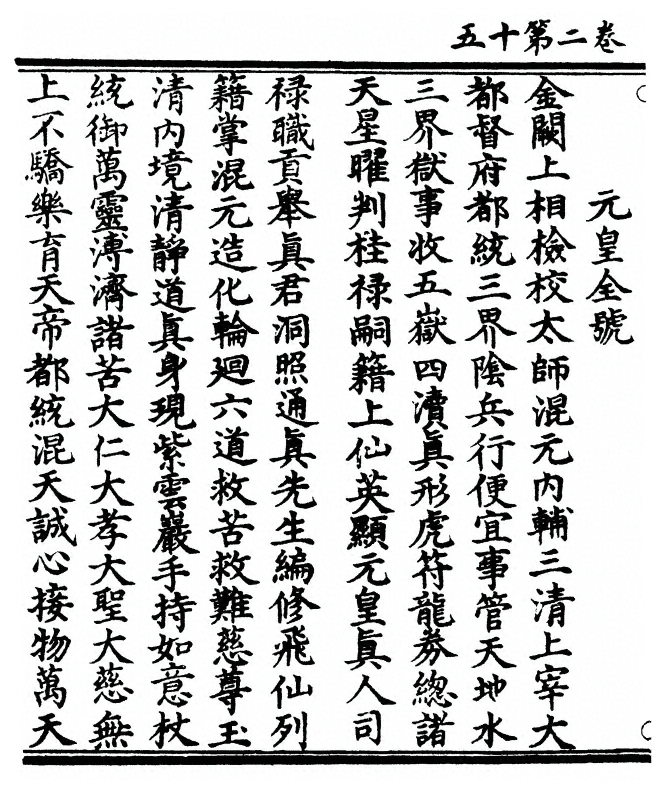 卷二第十五
元皇全號
金闕上相檢校太師混元內輔三清上宰大
都督府都統三界陰兵行便宜事管天地水
三界獄事收五嶽四瀆眞形虎符龍券總諸
天星曜判桂祿嗣籍上仙英顯元皇眞人司
祿職貢舉眞君洞照通眞先生編修飛仙列
籍掌混元造化輪廻六道救苦救難慈尊玉
清內境清靜道眞身現紫雲巖手持如意杖
統御萬靈溥濟諸苦大仁大孝大聖大慈無
上不驕樂育天帝都統混天誠心接物萬天